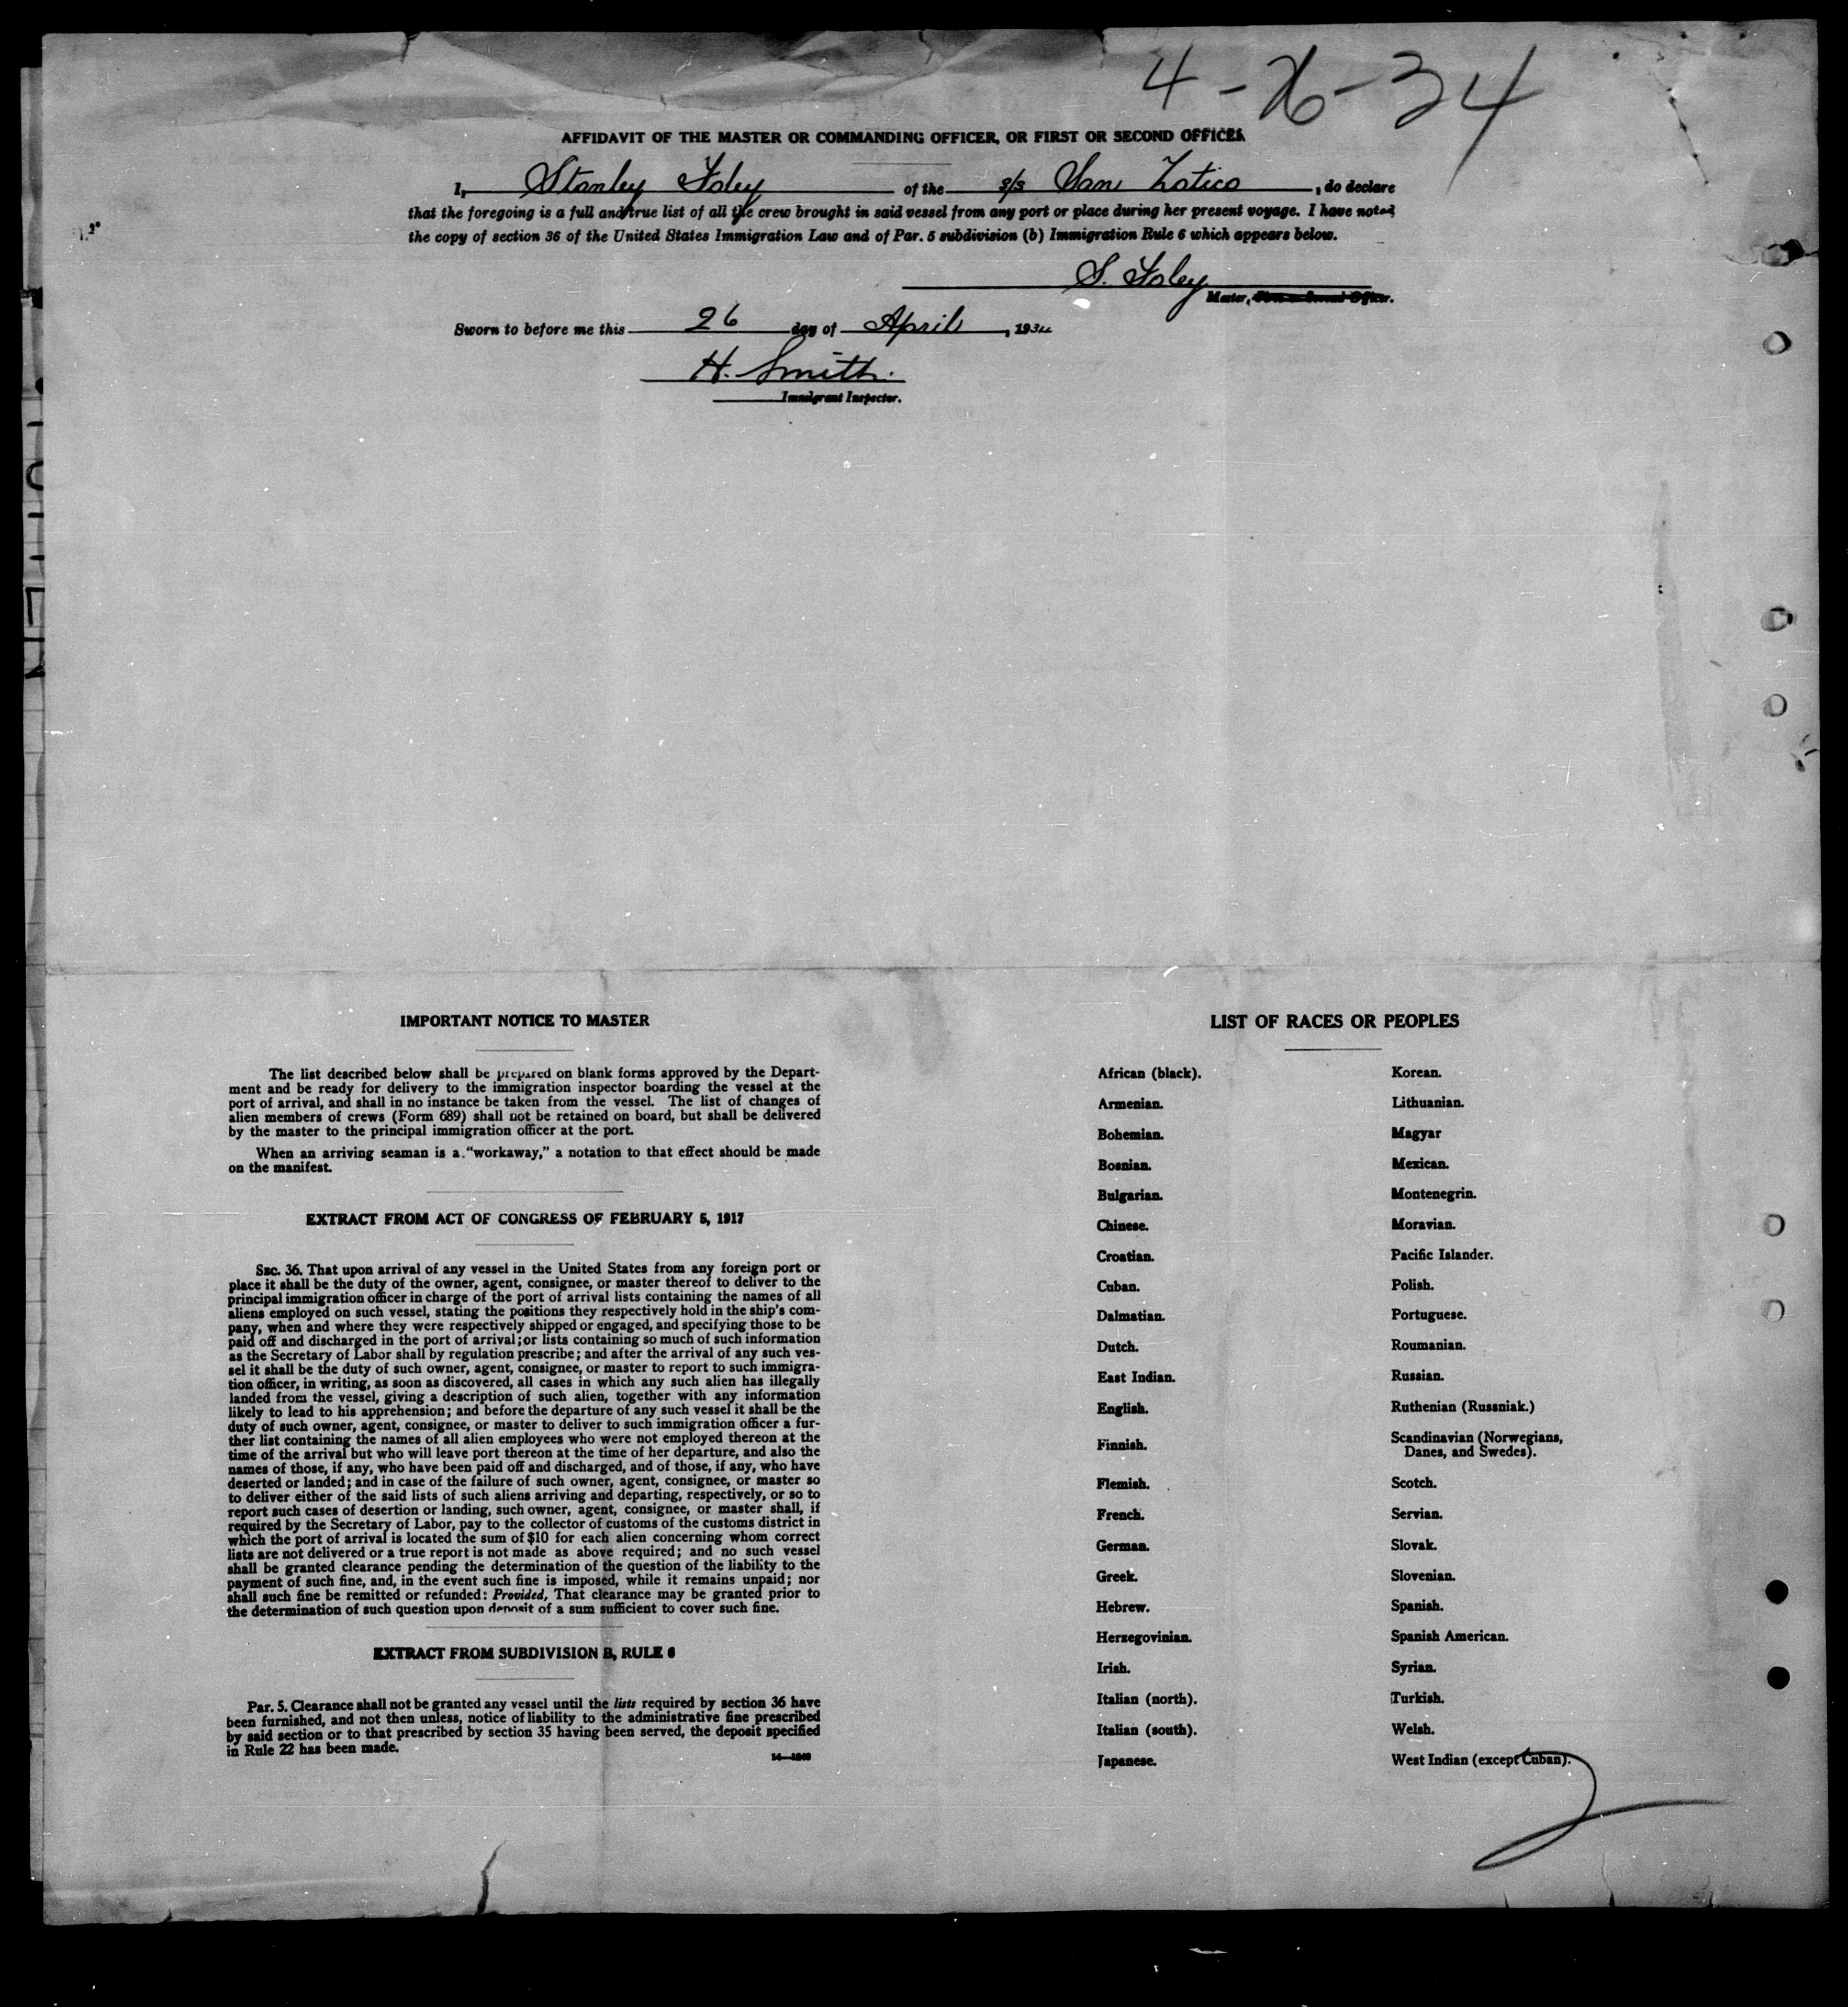 4-26-34
AFFIDAVIT OF THE MASTER OR COMMANDING OFFICER, OR FIRST OR SECOND OFFICER
I, Stanley Foley of the s/s San Zotico, do declare
that the foregoing is a full and true list of all the crew brought in said vessel from any port or place during her present voyage. I have noted
the copy of section 36 of the United States Immigration Law and of Par. 5 subdivision (b) Immigration Rule 6 which appears below.
S. Foley
Master, First or Second Officer.
Sworn to before me this 26 day of April, 1934
H. Smith.
Immigrant Inspector.
IMPORTANT NOTICE TO MASTER
The list described below shall be prepared on blank forms approved by the Depart-
ment and be ready for delivery to the immigration inspector boarding the vessel at the
port of arrival, and shall in no instance be taken from the vessel. The list of changes of
alien members of crews (Form 689) shall not be retained on board, but shall be delivered
by the master to the principal immigration officer at the port.
When an arriving seaman is a "workaway," a notation to that effect should be made
on the manifest.
EXTRACT FROM ACT OF CONGRESS OF FEBRUARY 5, 1917
SEC. 36. That upon arrival of any vessel in the United States from any foreign port or
place it shall be the duty of the owner, agent, consignee, or master thereof to deliver to the
principal immigration officer in charge of the port of arrival lists containing the names of all
aliens employed on such vessel, stating the positions they respectively hold in the ship's com-
pany, when and where they were respectively shipped or engaged, and specifying those to be
paid off and discharged in the port of arrival; or lists containing so much of such information
as the Secretary of Labor shall by regulation prescribe; and after the arrival of any such ves-
sel it shall be the duty of such owner, agent, consignee, or master to report to such immigra-
tion officer, in writing, as soon as discovered, all cases in which any such alien has illegally
landed from the vessel, giving a description of such alien, together with any information
likely to lead to his apprehension; and before the departure of any such vessel it shall be the
duty of such owner, agent, consignee, or master to deliver to such immigration officer a fur-
ther list containing the names of all alien employees who were not employed thereon at the
time of the arrival but who will leave port thereon at the time of her departure, and also the
names of those, if any, who have been paid off and discharged, and of those, if any, who have
deserted or landed; and in case of the failure of such owner, agent, consignee, or master so
to deliver either of the said lists of such aliens arriving and departing, respectively, or so to
report such cases of desertion or landing, such owner, agent, consignee, or master shall, if
required by the Secretary of Labor, pay to the collector of customs of the customs district in
which the port of arrival is located the sum of $10 for each alien concerning whom correct
lists are not delivered or a true report is not made as above required; and no such vessel
shall be granted clearance pending the determination of the question of the liability to the
payment of such fine, and, in the event such fine is imposed, while it remains unpaid; nor
shall such fine be remitted or refunded: Provided, That clearance may be granted prior to
the determination of such question upon deposit of a sum sufficient to cover such fine.
EXTRACT FROM SUBDIVISION B, RULE 6
Par. 5. Clearance shall not be granted any vessel until the lists required by section 36 have
been furnished, and not then unless, notice of liability to the administrative fine prescribed
by said section or to that prescribed by section 35 having been served, the deposit specified
in Rule 22 has been made.
LIST OF RACES OR PEOPLES
African (black).
Armenian.
Bohemian.
Bosnian.
Bulgarian.
Chinese.
Croatian.
Cuban.
Dalmatian.
Dutch.
East Indian.
English.
Finnish.
Flemish.
French.
German.
Greek.
Hebrew.
Herzegovinian.
Irish.
Italian (north).
Italian (south).
Japanese.
Korean.
Lithuanian.
Magyar
Mexican.
Montenegrin.
Moravian.
Pacific Islander.
Polish.
Portuguese.
Roumanian.
Russian.
Ruthenian (Russniak.)
Scandinavian (Norwegians,
Danes, and Swedes).
Scotch.
Servian.
Slovak.
Slovenian.
Spanish.
Spanish American.
Syrian.
Turkish.
Welsh.
West Indian (except Cuban).